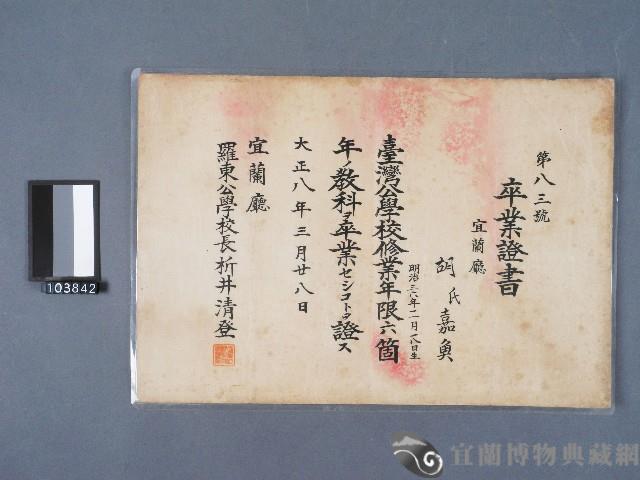 第八三號
卒業證書
宜蘭廳
胡氏嘉奧
明治三八年二月一八日生
臺灣公學校修業年限六箇
年ノ教科ヲ卒業セシコトヲ證ス
大正八年三月廿八日
宜蘭廳
羅東公學校長析井清登
103842
宜蘭博物典藏網